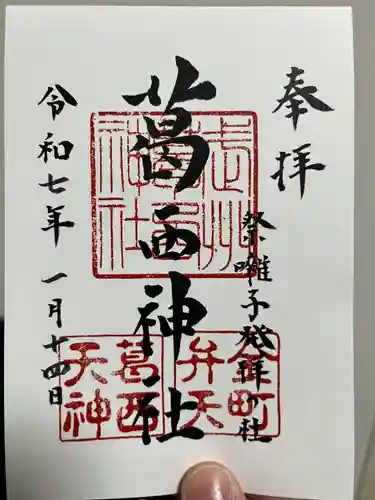 奉拝
祭囃子発祥の社
葛西神社
令和七年 一月十四日
金町
弁天
葛西
天神